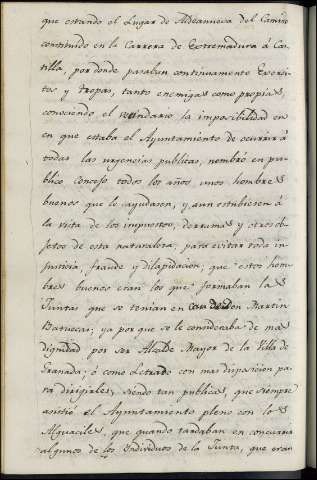 que estando el Lugar de Aldeanueva del Camino
constituido en la Carrera de Extremadura á Cas-
tilla, por donde pasaban continuamente Exerci-
tos y tropas, tanto enemigas como propias,
conociendo el vecindario la imposibilidad en
en que estaba el Ayuntamiento de ocurrir á
todas las urgencias publicas, nombró en pu-
blico Concejo todos los años unos hombres
buenos que le ayudasen, y aun estubiesen á
la vista de los impuestos, derramas y otros ob-
jetos de esta naturaleza, para evitar toda in-
justicia, fraude y dilapidacion; que estos hom-
bres buenos eran los que formaban las
Juntas que se tenian en casa de don Martin
Batuecas; ya porque se le consideraba de mas
dignidad por ser Alcalde Mayor de la Villa de
Granada; ó como Letrado con mas disposicion pa-
ra dirigirles, siendo tan publicas, que siempre
asistió el Ayuntamiento pleno con los
Alguaciles, que quando tardaban en concurrir
algunos de los Individuos de la Junta, que eran